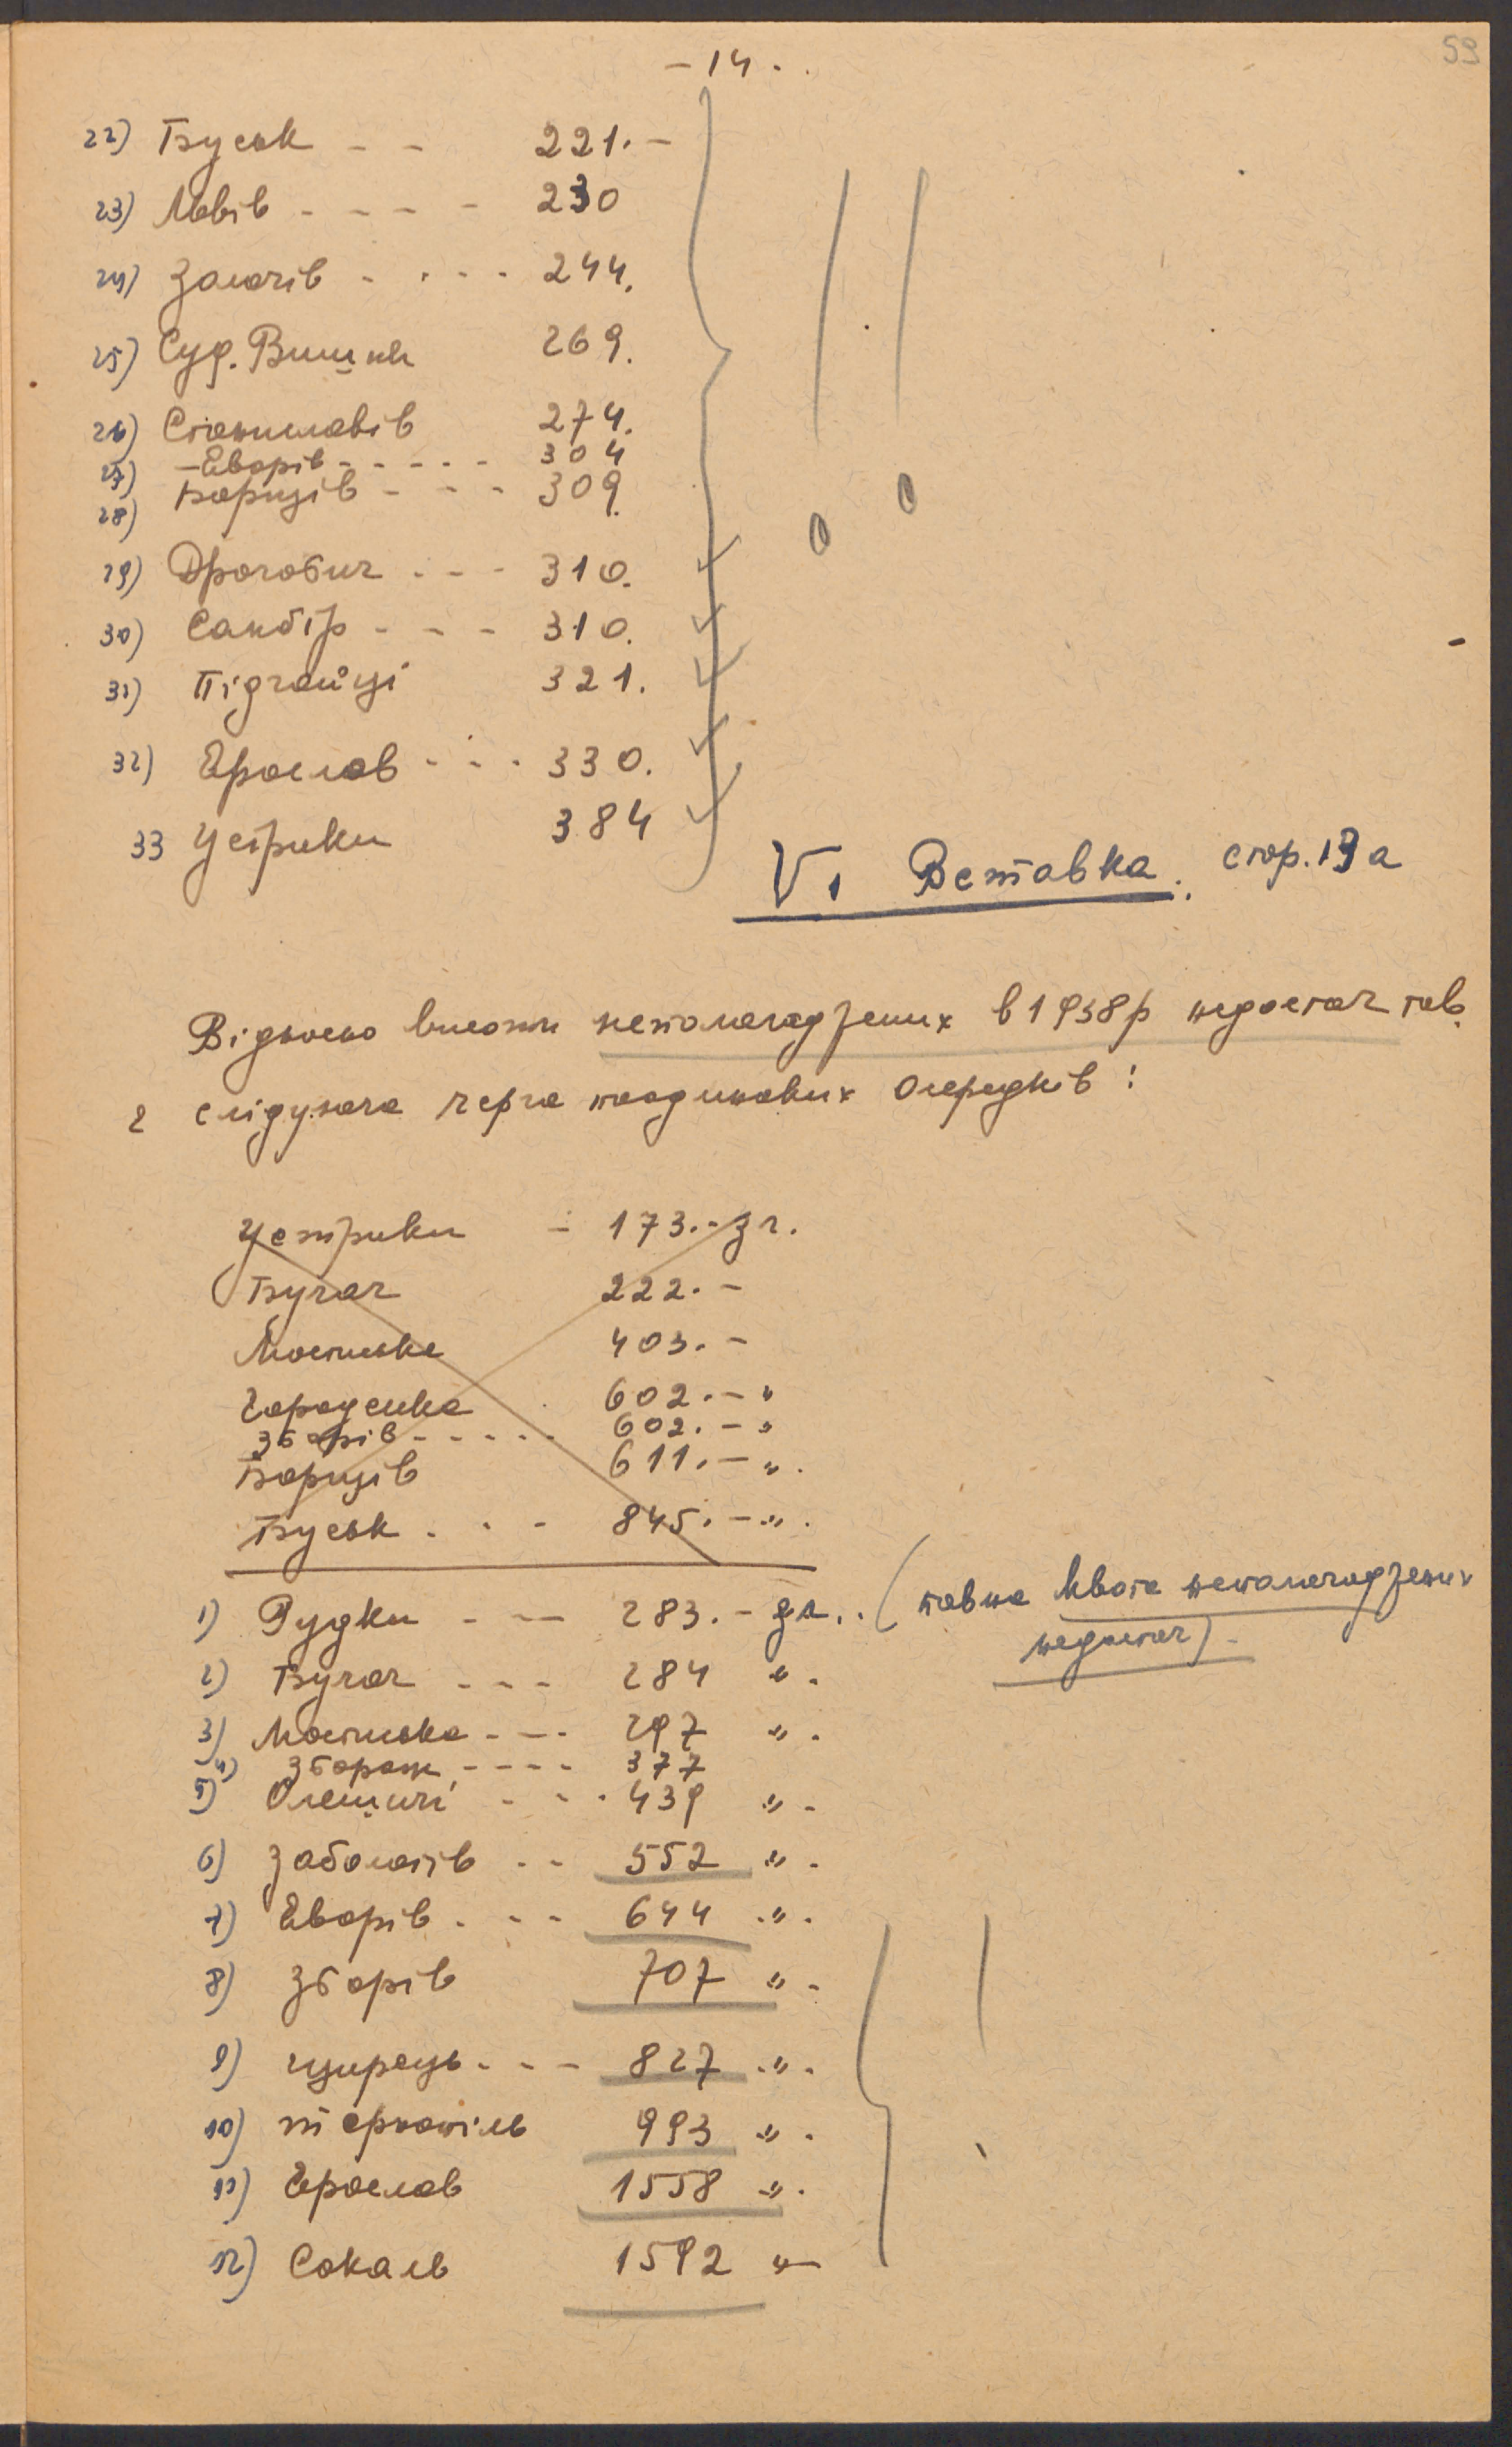 59
- 14 .
22) Буськ - - 221.-
23) Львів - - - - 230
24) Золочів - - - - 244.
25) Суд. Вишня 269.
26) Станиславів 274.
27) - Яворів - - - - - 304
28) Борщів - - - 309.
29) Дрогобич - - - 310.
30) Самбір - - - 310.
31) Підгайці 321.
32) Ярослав - - - 330.
33 Устрики 384
V. Вставка. стор. 13 а
Відносно висоти неполагоджених в 1938р недостач тов.
є слідуюча черга поодиноких Осередків:
Устрики - 173.- зл.
Бучач 222.-
Мостиська 403.-
Городенка 602.- "
Зборів - - - - - 602.- "
Борщів 611.- ".
Буськ . - - 845.- ".
1) Рудки - - 283.- зл.. (повна квота неполагоджених
недостач)-
2) Бучач - - - 284 ".
3) Мостиська - - - 297 ".
4) Збараж - - - - 377
5) Олешичі - - - 439 " -
6) Заболотів - - 552 " -
7) Яворів . - - 644 ".
8) Зборів 707 " -
9) Щирець - - - 827 ".
10) Тернопіль 993 ".
11) Ярослав 1558 ".
12) Сокаль 1592 "